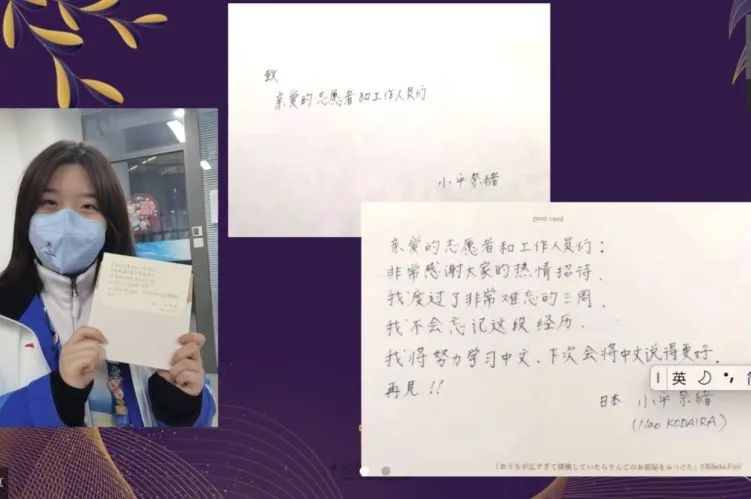 致
亲爱的志愿者和工作人员们
小平奈緒
post card
亲爱的志愿者和工作人员们：
非常感谢大家的热情招待.
我度过了非常难忘的三周.
我不会忘记这段经历.
我将努力学习中文、下次会将中文说得更好.
再見！！
日本 小平奈緒
(Nao KODAIRA)
英
「おうちが広すぎて探検していたらりんごのお部屋をみつけた」